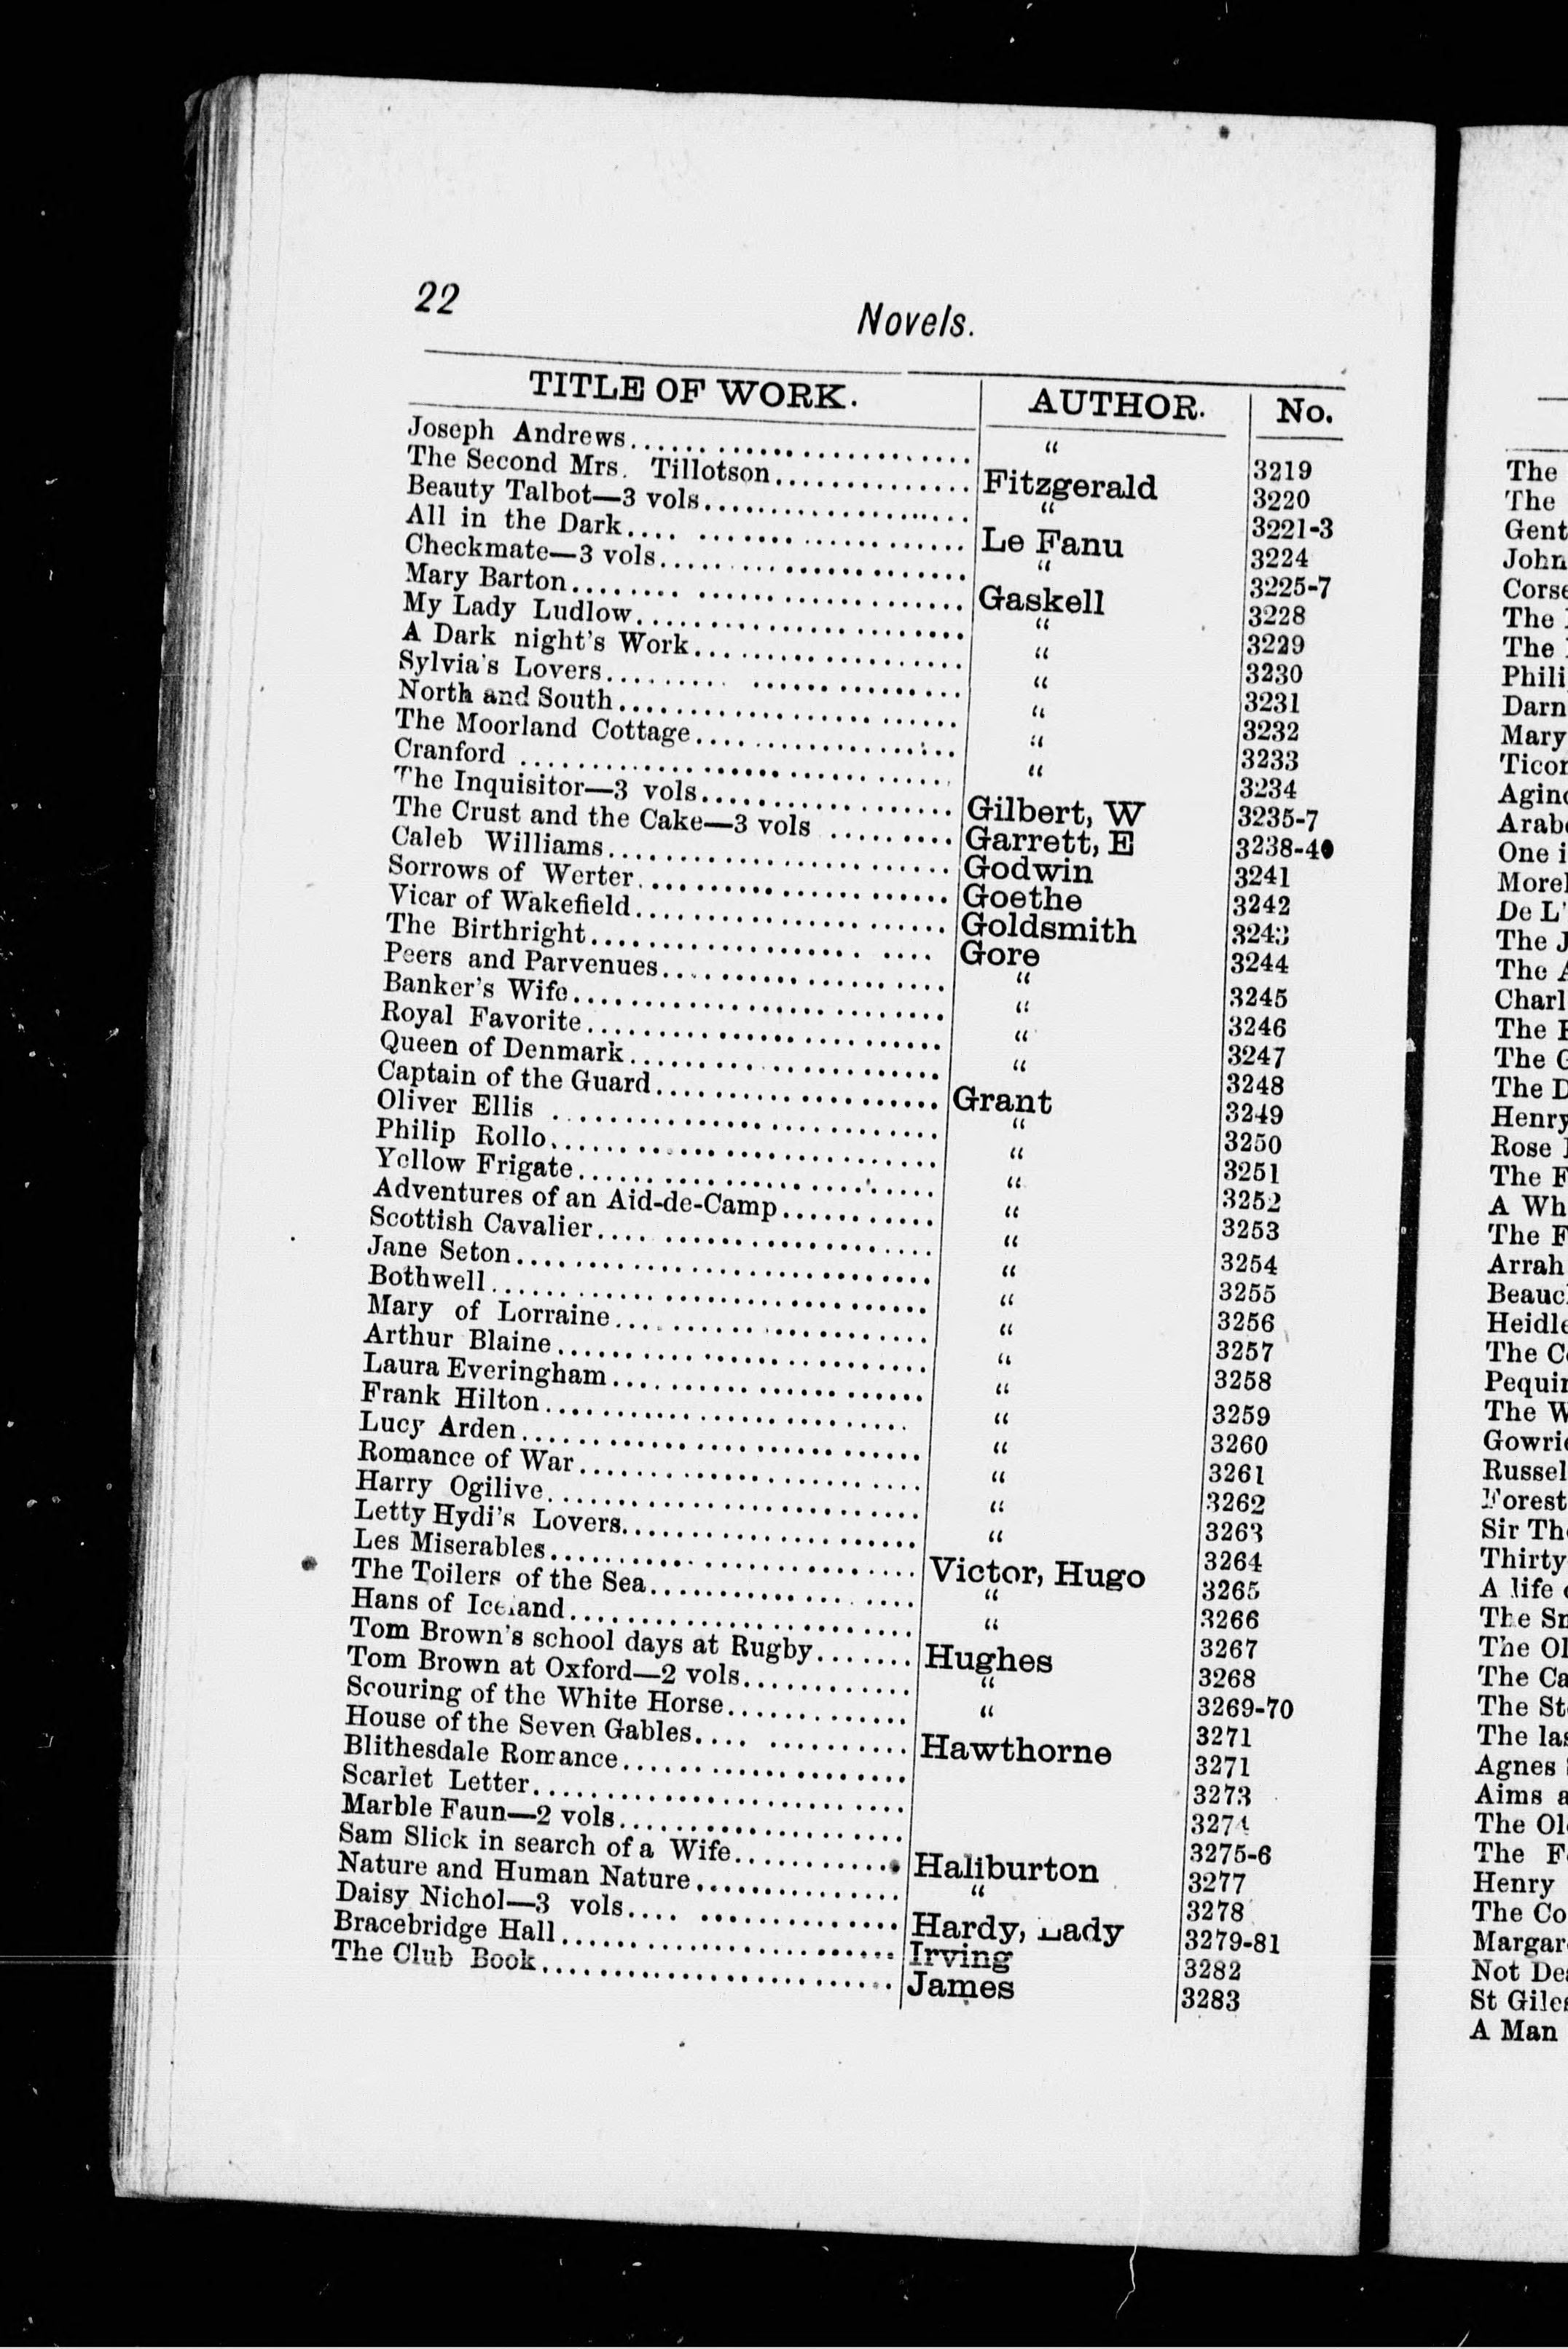 22
Novels.
TITLE OF WORK. AUTHOR. No.
Joseph Andrews.................... “ 3219
The Second Mrs. Tillotson.............. Fitzgerald 3220
Beauty Talbot—3 vols.................. “ 3221-3
All in the Dark.................... Le Fanu 3224
Checkmate—3 vols.................... “ 3225-7
Mary Barton.................... Gaskell 3228
My Lady Ludlow.................... “ 3229
A Dark night's Work.................... “ 3230
Sylvia's Lovers.................... “ 3231
North and South.................... “ 3232
The Moorland Cottage.................... “ 3233
Cranford .................... “ 3234
The Inquisitor—3 vols.................... Gilbert, W 3235-7
The Crust and the Cake—3 vols ......... Garrett, E 3238-40
Caleb Williams.................... Godwin 3241
Sorrows of Werter.................... Goethe 3242
Vicar of Wakefield.................... Goldsmith 3243
The Birthright.................... Gore 3244
Peers and Parvenues.................... “ 3245
Banker's Wife.................... “ 3246
Royal Favorite.................... “ 3247
Queen of Denmark.................... “ 3248
Captain of the Guard.................... Grant 3249
Oliver Ellis .................... “ 3250
Philip Rollo.................... “ 3251
Yellow Frigate.................... “ 3252
Adventures of an Aid-de-Camp........... “ 3253
Scottish Cavalier.................... “ 3254
Jane Seton.................... “ 3255
Bothwell.................... “ 3256
Mary of Lorraine.................... “ 3257
Arthur Blaine.................... “ 3258
Laura Everingham.................... “ 3259
Frank Hilton.................... “ 3260
Lucy Arden.................... “ 3261
Romance of War.................... “ 3262
Harry Ogilive.................... “ 3263
Letty Hydi's Lovers.................... “ 3264
Les Miserables.................... Victor, Hugo 3265
The Toilers of the Sea.................... “ 3266
Hans of Iceland.................... “ 3267
Tom Brown's school days at Rugby....... Hughes 3268
Tom Brown at Oxford—2 vols............ “ 3269-70
Scouring of the White Horse............. “ 3271
House of the Seven Gables.... .......... Hawthorne 3271
Blithesdale Romance.................... 3273
Scarlet Letter.................... 3274
Marble Faun—2 vols.................... 3275-6
Sam Slick in search of a Wife........... Haliburton 3277
Nature and Human Nature............... “ 3278
Daisy Nichol—3 vols.................... Hardy, Lady 3279-81
Bracebridge Hall.................... Irving 3282
The Club Book.................... James 3283
The
The
Gent
John
The
The
Phili
Darn
Mary
One i
De L'
The J
The A
Charl
The
The
The D
Henry
Rose
The F
A Wh
The F
Arrah
The
The W
Russel
Forest
Sir Th
Thirty
A life
The Sn
The Ol
The Ca
The St
The las
Agnes
Aims a
The Ol
The F
Henry
The Co
Margar
Not De
St Giles
A Man